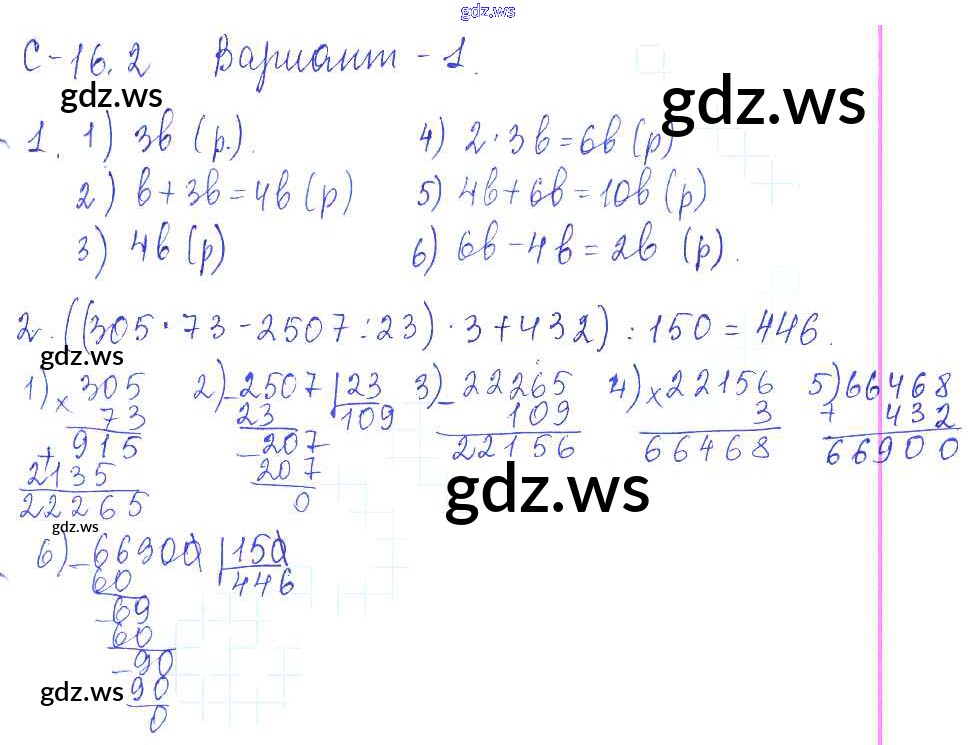 gdz.ws
С-16.2 Вариант - 1.
gdz.ws
gdz.ws
1. 1) 3b (р.). 4) 2·3b=6b (р)
2) b+3b=4b (р) 5) 4b+6b=10b (р)
3) 4b (р) 6) 6b-4b=2b (р).
2. ((305·73-2507:23)·3+432):150=446.
gdz.ws
1) × 305 2) -2507 23 3) -22265 4) ×22156 5) 66468
73 23 109 109 3 + 432
915 -207 22156 66468 66900
+ 2135 207
22265 0
gdz.ws
gdz.ws
6) -66900 150
60 446
-69
60
-90
gdz.ws
90
0